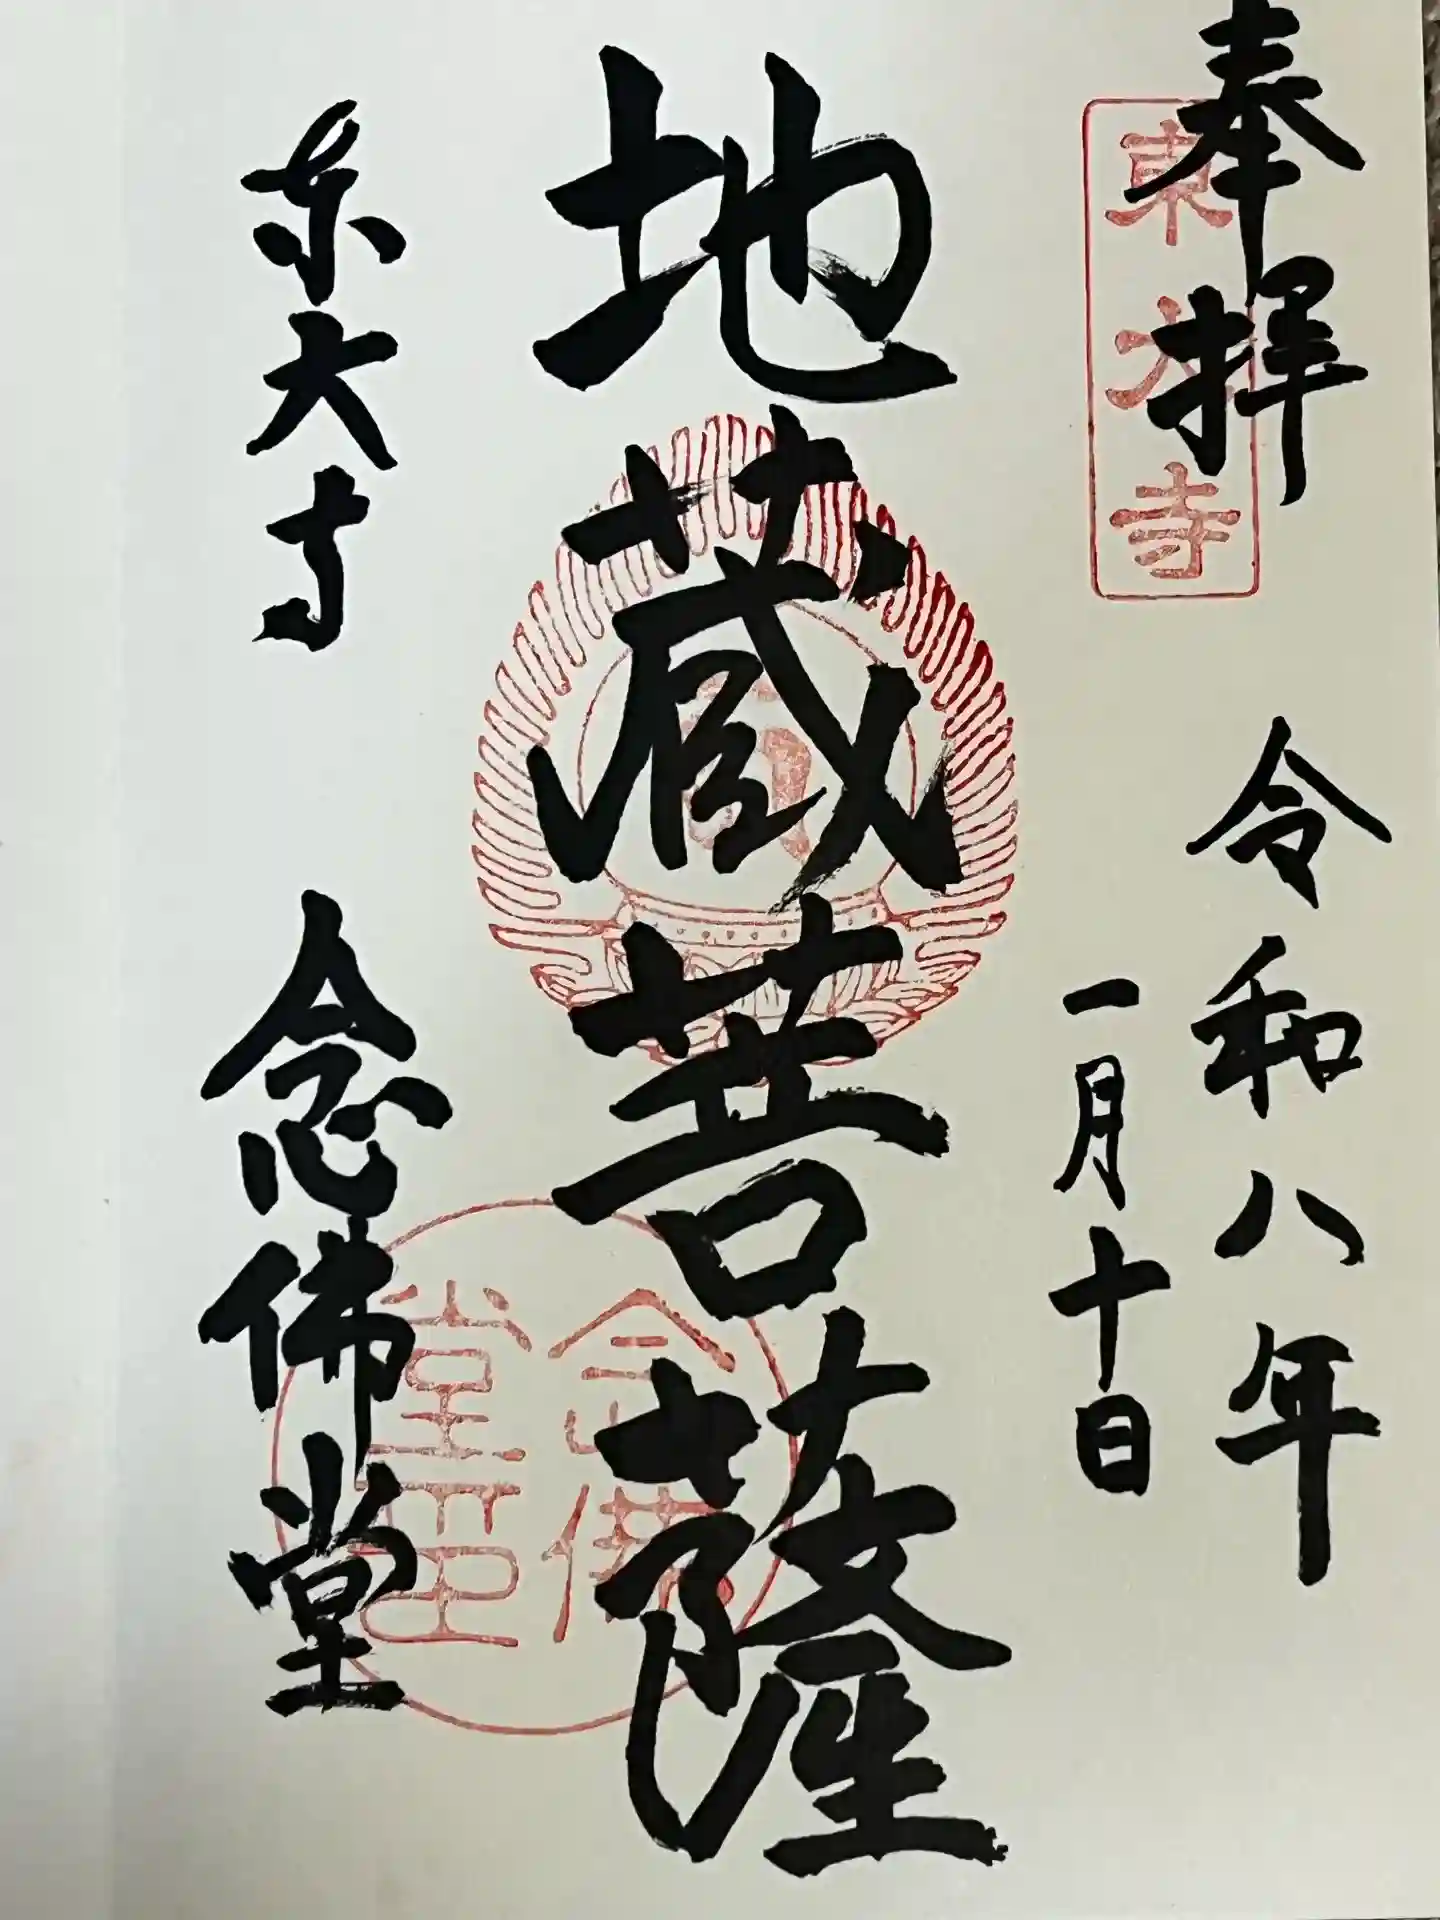 奉拝
東大寺
令和八年
一月十日
地蔵菩薩
東大寺
念佛堂
念佛
堂印